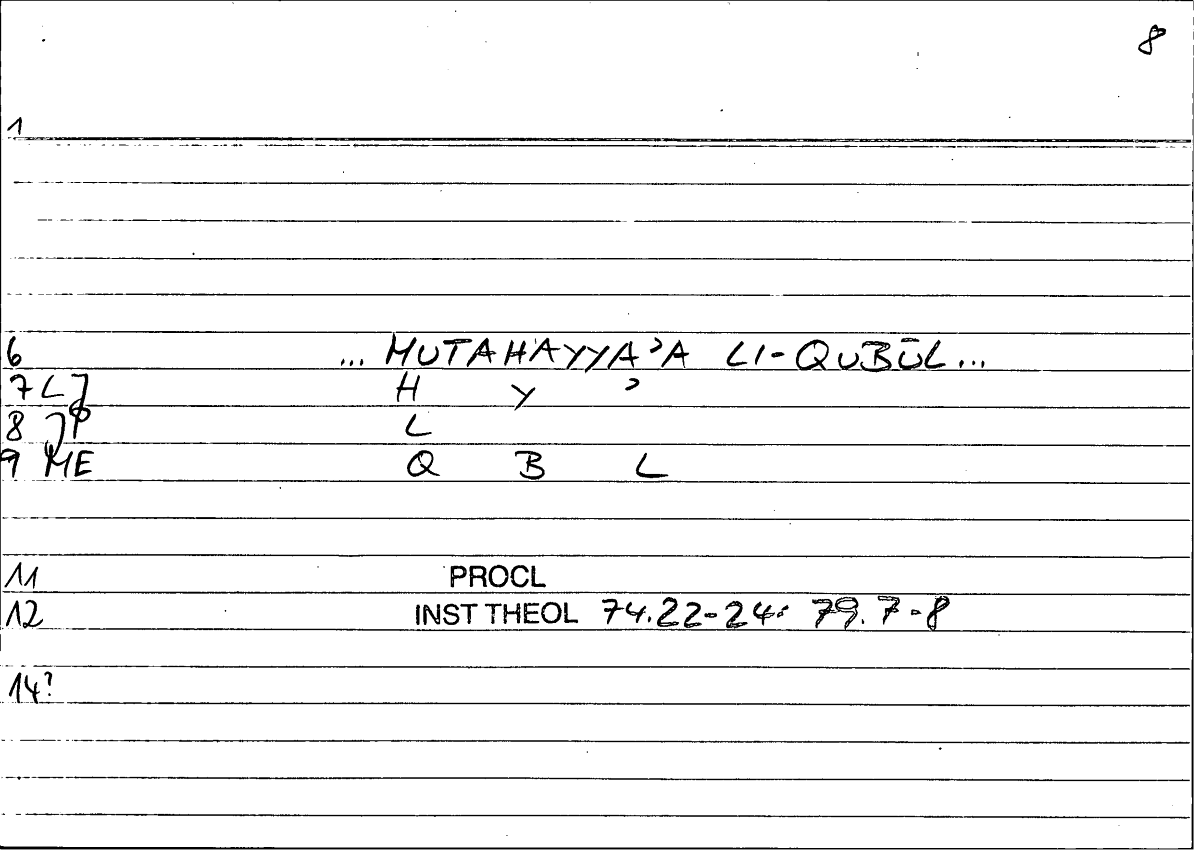 8
1
6 ... MUTAHAYYAʾA LI-QUBŪL...
7 H Y ʾ
8 L
9 ME Q B L
11 PROCL
12 INST THEOL 74.22-24: 79.7-8
14?